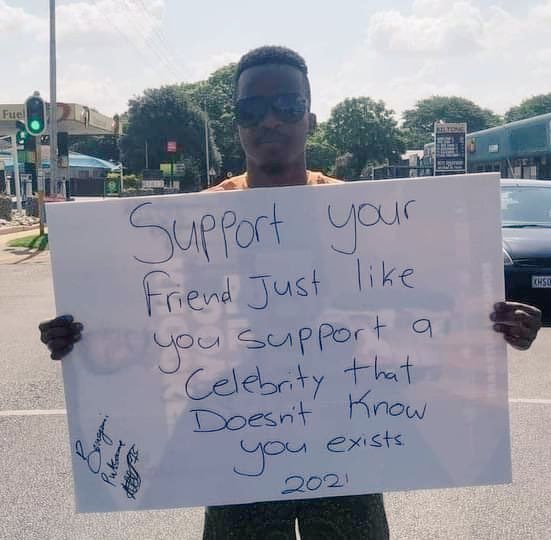 Fuel
BILTONG
Support your
Friend Just like
you support a
Celebrity that
Doesn't Know
you exists
2021